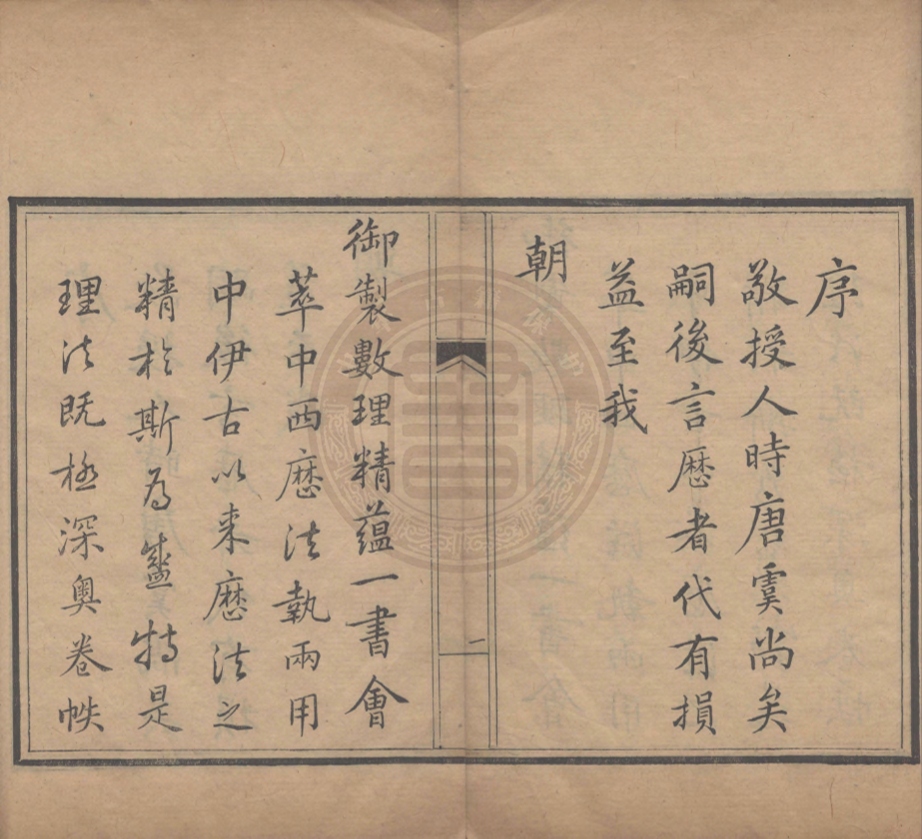 序
敬授人時唐虞尚矣
嗣後言歷者代有損
益至我
朝
御製數理精蘊一書會
萃中西歷法執兩用
中伊古以来歷法之
精於斯為盛特是
理法既極深奧卷帙
二